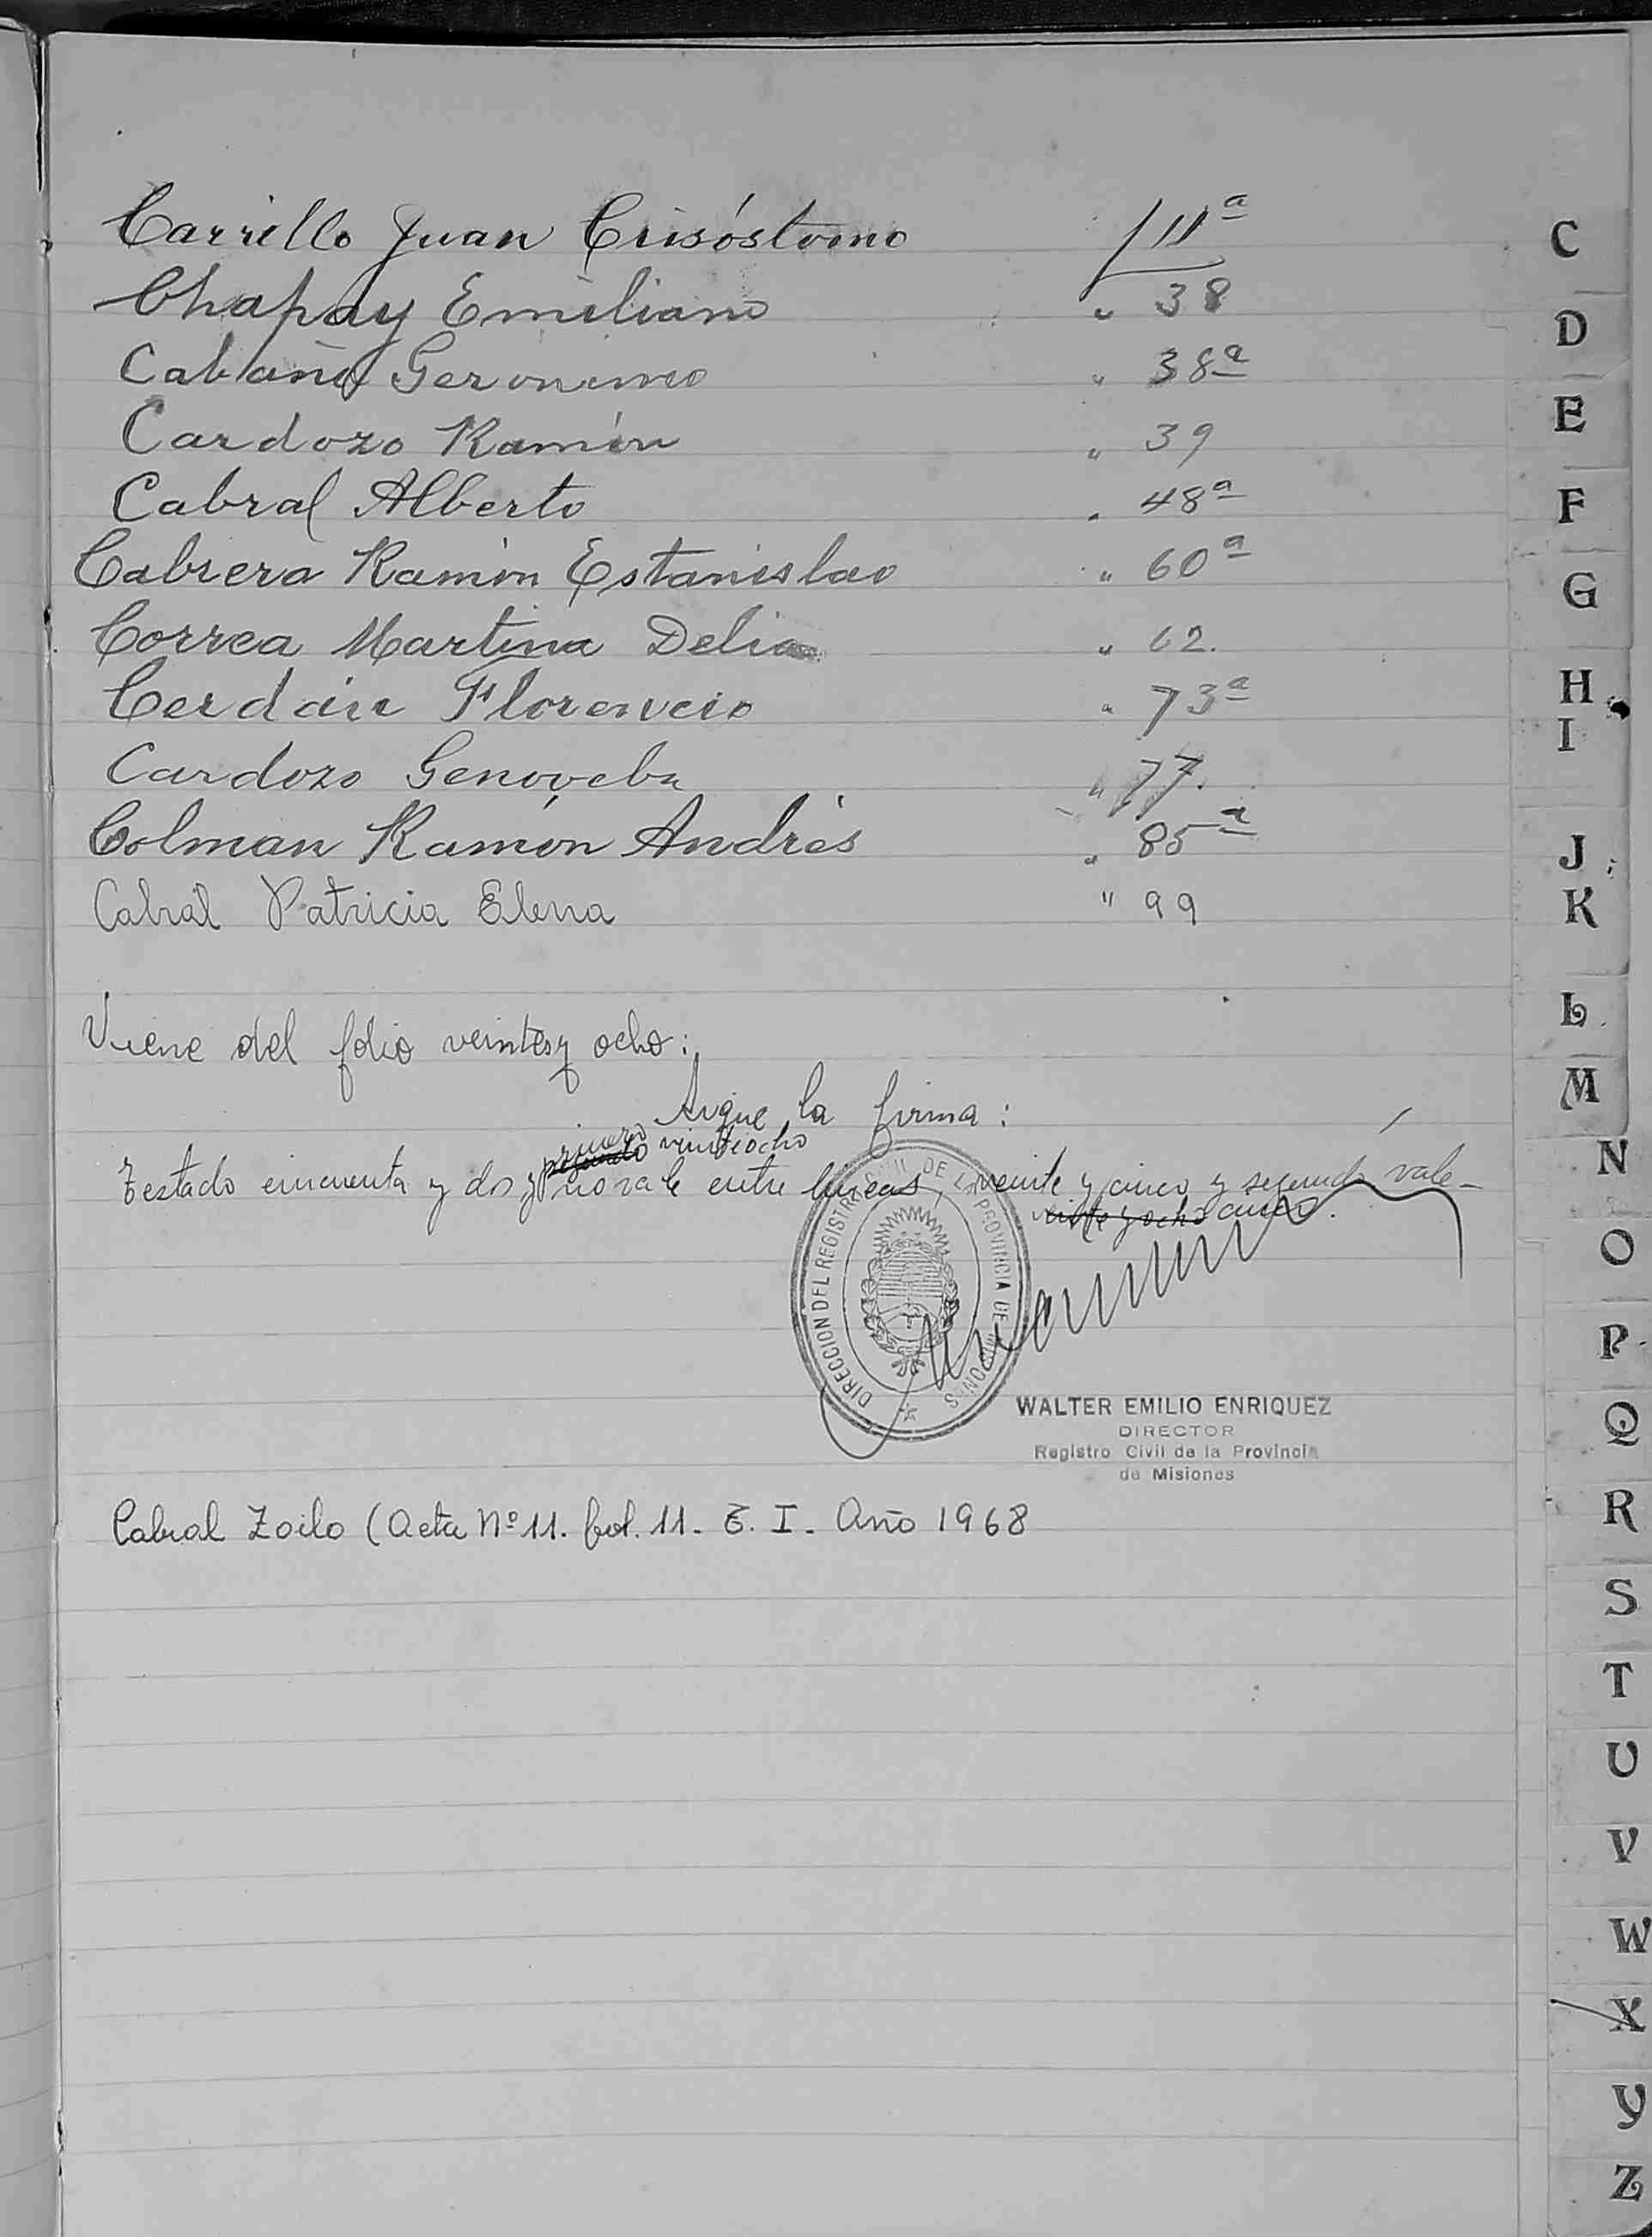 Carrillo Juan Crisóstomo f 11ª
Chapay Emiliano " 38
Cabaña Geronimo " 38ª
Cardozo Ramón " 39
Cabral Alberto " 48ª
Cabrera Ramón Estanislao " 60ª
Correa Martina Delia " 62.
Cerdán Florencio " 73ª
Cardozo Genoveba " 77.
Colman Ramón Andrés " 85ª
Cabral Patricia Elena " 99
Viene del folio veintes y ocho:
Sigue la firma:
primero veintiocho
Testado cincuenta y dos y no vale entre lineas, veinte y cinco y segundo vale-
veinte y ocho cinco.
DIRECCION DEL REGISTRO CIVIL DE LA PROVINCIA DE MISIONES
WALTER EMILIO ENRIQUEZ
DIRECTOR
Registro Civil de la Provincia
de Misiones
Cabral Zoilo (Acta Nº 11. fol. 11- T. I- Año 1968
C
D
E
F
G
H
I
J
K
L
M
N
O
P
Q
R
S
T
U
V
W
X
Y
Z